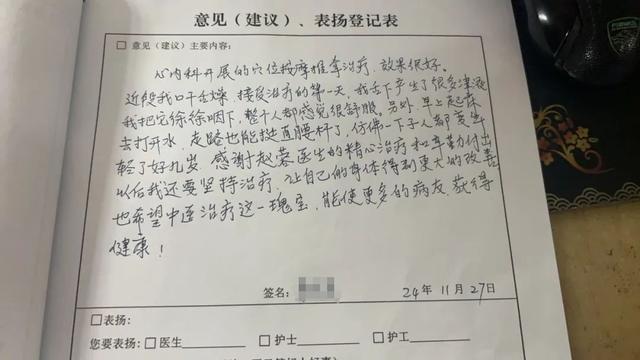 意见（建议）、表扬登记表
□ 意见（建议）主要内容：
心内科开展的穴位按摩推拿治疗，效果很好。
近段我口干舌燥，接受治疗的第一天，我舌下产生了很多津液
我把它徐徐咽下，整个人都感觉很舒服。另外，早上起床
去打开水，走路也能挺直腰杆了，仿佛一下子人都变年
轻了好几岁，感谢赵荣医生的精心治疗和辛勤付出
以后我还要坚持治疗，让自己的身体得到更大的改善
也希望中医治疗这一瑰宝，能使更多的病友，获得
健康！
签名：
24年 11月 27日
□表扬：
您要表扬：□医生 □护士 □护工